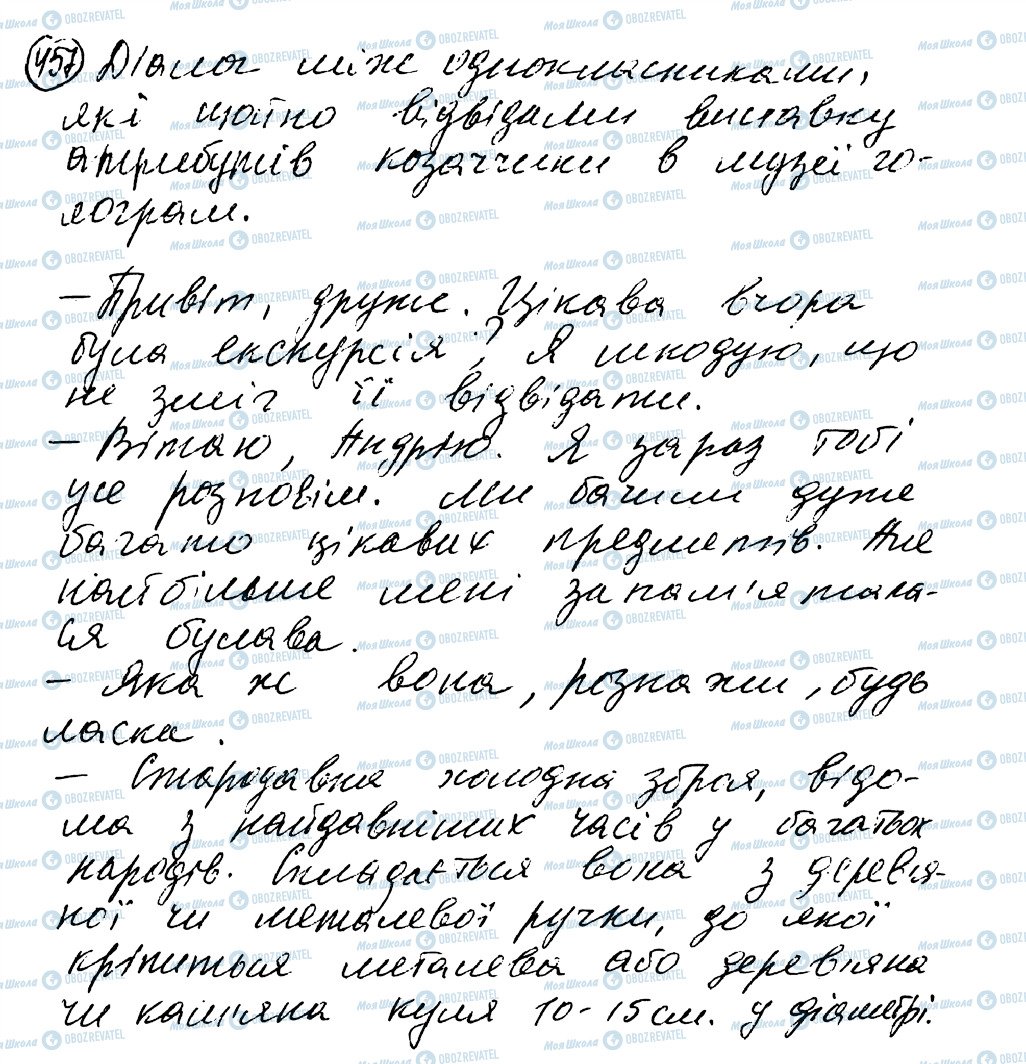 457 Діалог між однокласниками,
які щойно відвідали виставку
атрибутів козаччини в музеї го-
лограм.
– Привіт, друже. Цікава вчора
була екскурсія? Я шкодую, що
не зміг її відвідати.
– Вітаю, Андрію. Я зараз тобі
усе розповім. Ми бачили дуже
багато цікавих предметів. Але
найбільше мені запам'ятала-
ся булава.
– Яка ж вона, розкажи, будь
ласка.
– Стародавня холодна зброя, відо-
ма з найдавніших часів у багатьох
народів. Складається вона з дерев'я-
ної чи металевої ручки, до якої
кріпиться металева або дерев'яна
чи кам'яна куля 10-15 см. у діаметрі.